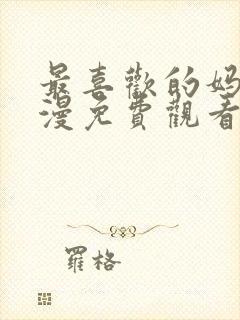 最喜歡的妈
漫免費觀看
羅格